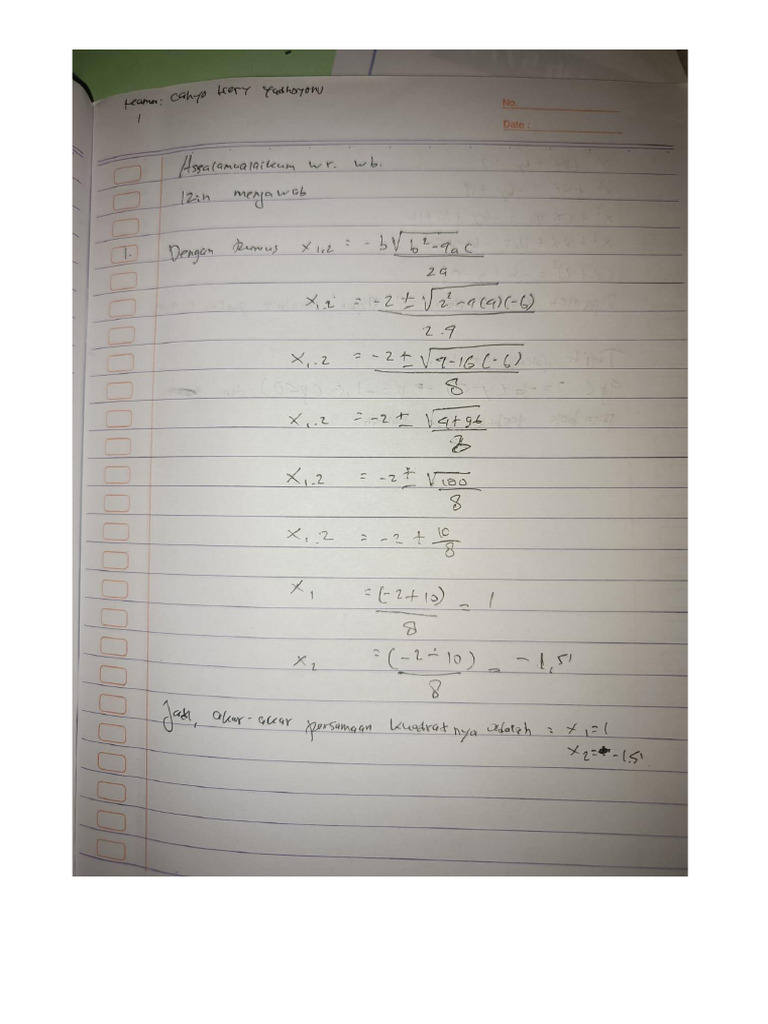 Cahyo
1
No.
Date :
Assalamualaikum wr. wb.
Izin menjawab
1. Dengan Rumus x₁,₂ = -b√b²-4ac / 2a
x₁,₂ = -2 ± √2²-4(4)(-6) / 2.4
x₁.₂ = -2 ± √4-16(-6) / 8
x₁.₂ = -2 ± √4+96 / 8
x₁.₂ = -2 ± √100 / 8
x₁.₂ = -2 + 10/8
x₁ = (-2+10) / 8 = 1
x₂ = (-2-10) / 8 = -1,5
Jadi, akar-akar persamaan kuadratnya adalah : x₁=1
x₂= -1,5